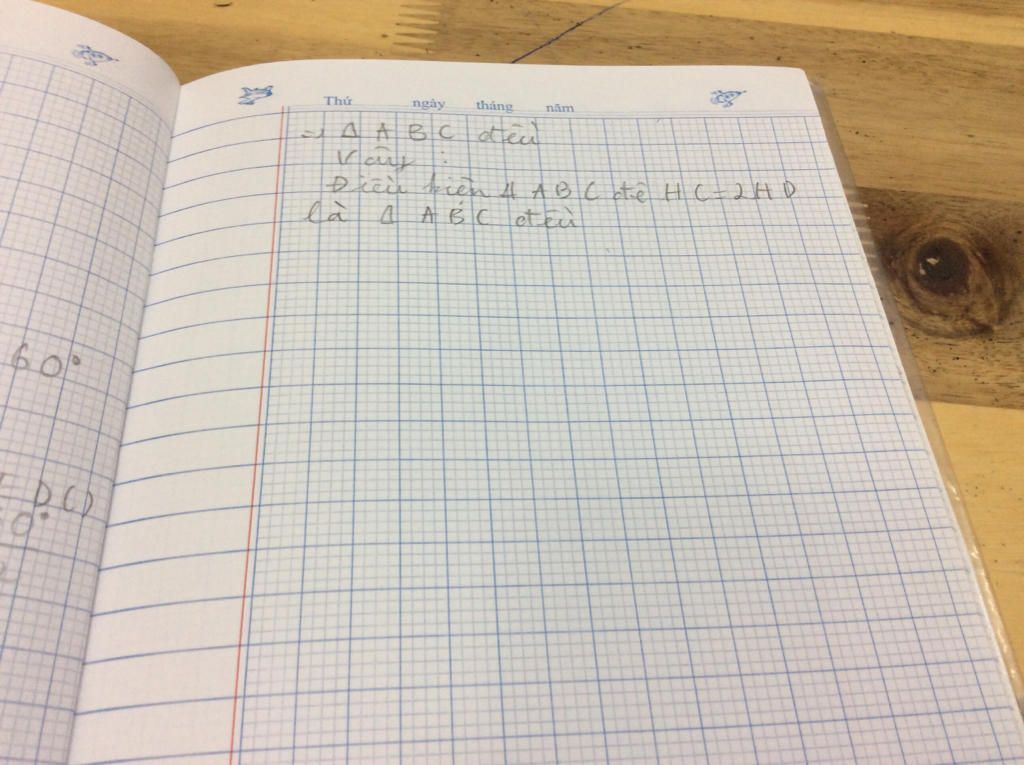 Thứ ngày tháng năm
⇒ Δ A B C đều
Vậy :
Điều kiện Δ A B C để HC = 2HD
là Δ A B C đều
60°
DC)
0°